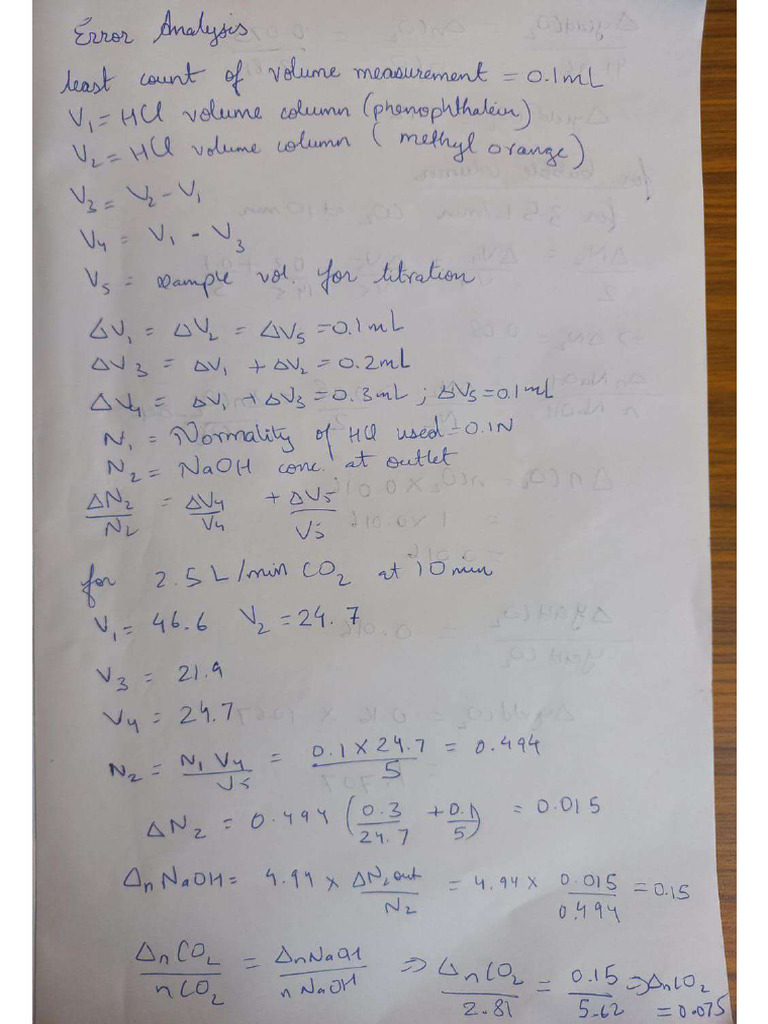 Error Analysis
least count of volume measurement = 0.1mL
V₁ = HCl volume column (phenophthalein)
V₂ = HCl volume column ( methyl orange)
V₃ = V₂ - V₁
V₄ = V₁ - V₃
V₅ = sample vol. for titration
ΔV₁ = ΔV₂ = ΔV₅ = 0.1mL
ΔV₃ = ΔV₁ + ΔV₂ = 0.2mL
ΔV₄ = ΔV₁ + ΔV₃ = 0.3mL ; ΔV₅ = 0.1mL
N₁ = Normality of HCl used = 0.1N
N₂ = NaOH conc. at outlet
ΔN₂/N₂ = ΔV₄/V₄ + ΔV₅/V₅
for 2.5 L/min CO₂ at 10 min
V₁ = 46.6 V₂ = 24.7
V₃ = 21.9
V₄ = 24.7
N₂ = N₁ V₄/V₅ = 0.1 X 24.7/5 = 0.494
ΔN₂ = 0.494 (0.3/24.7 + 0.1/5) = 0.015
Δn NaOH = 4.94 x ΔN₂out/N₂ = 4.94 x 0.015/0.494 = 0.15
ΔnCO₂/nCO₂ = ΔnNaOH/nNaOH => ΔnCO₂/2.81 = 0.15/5.62 => ΔnCO₂ = 0.075